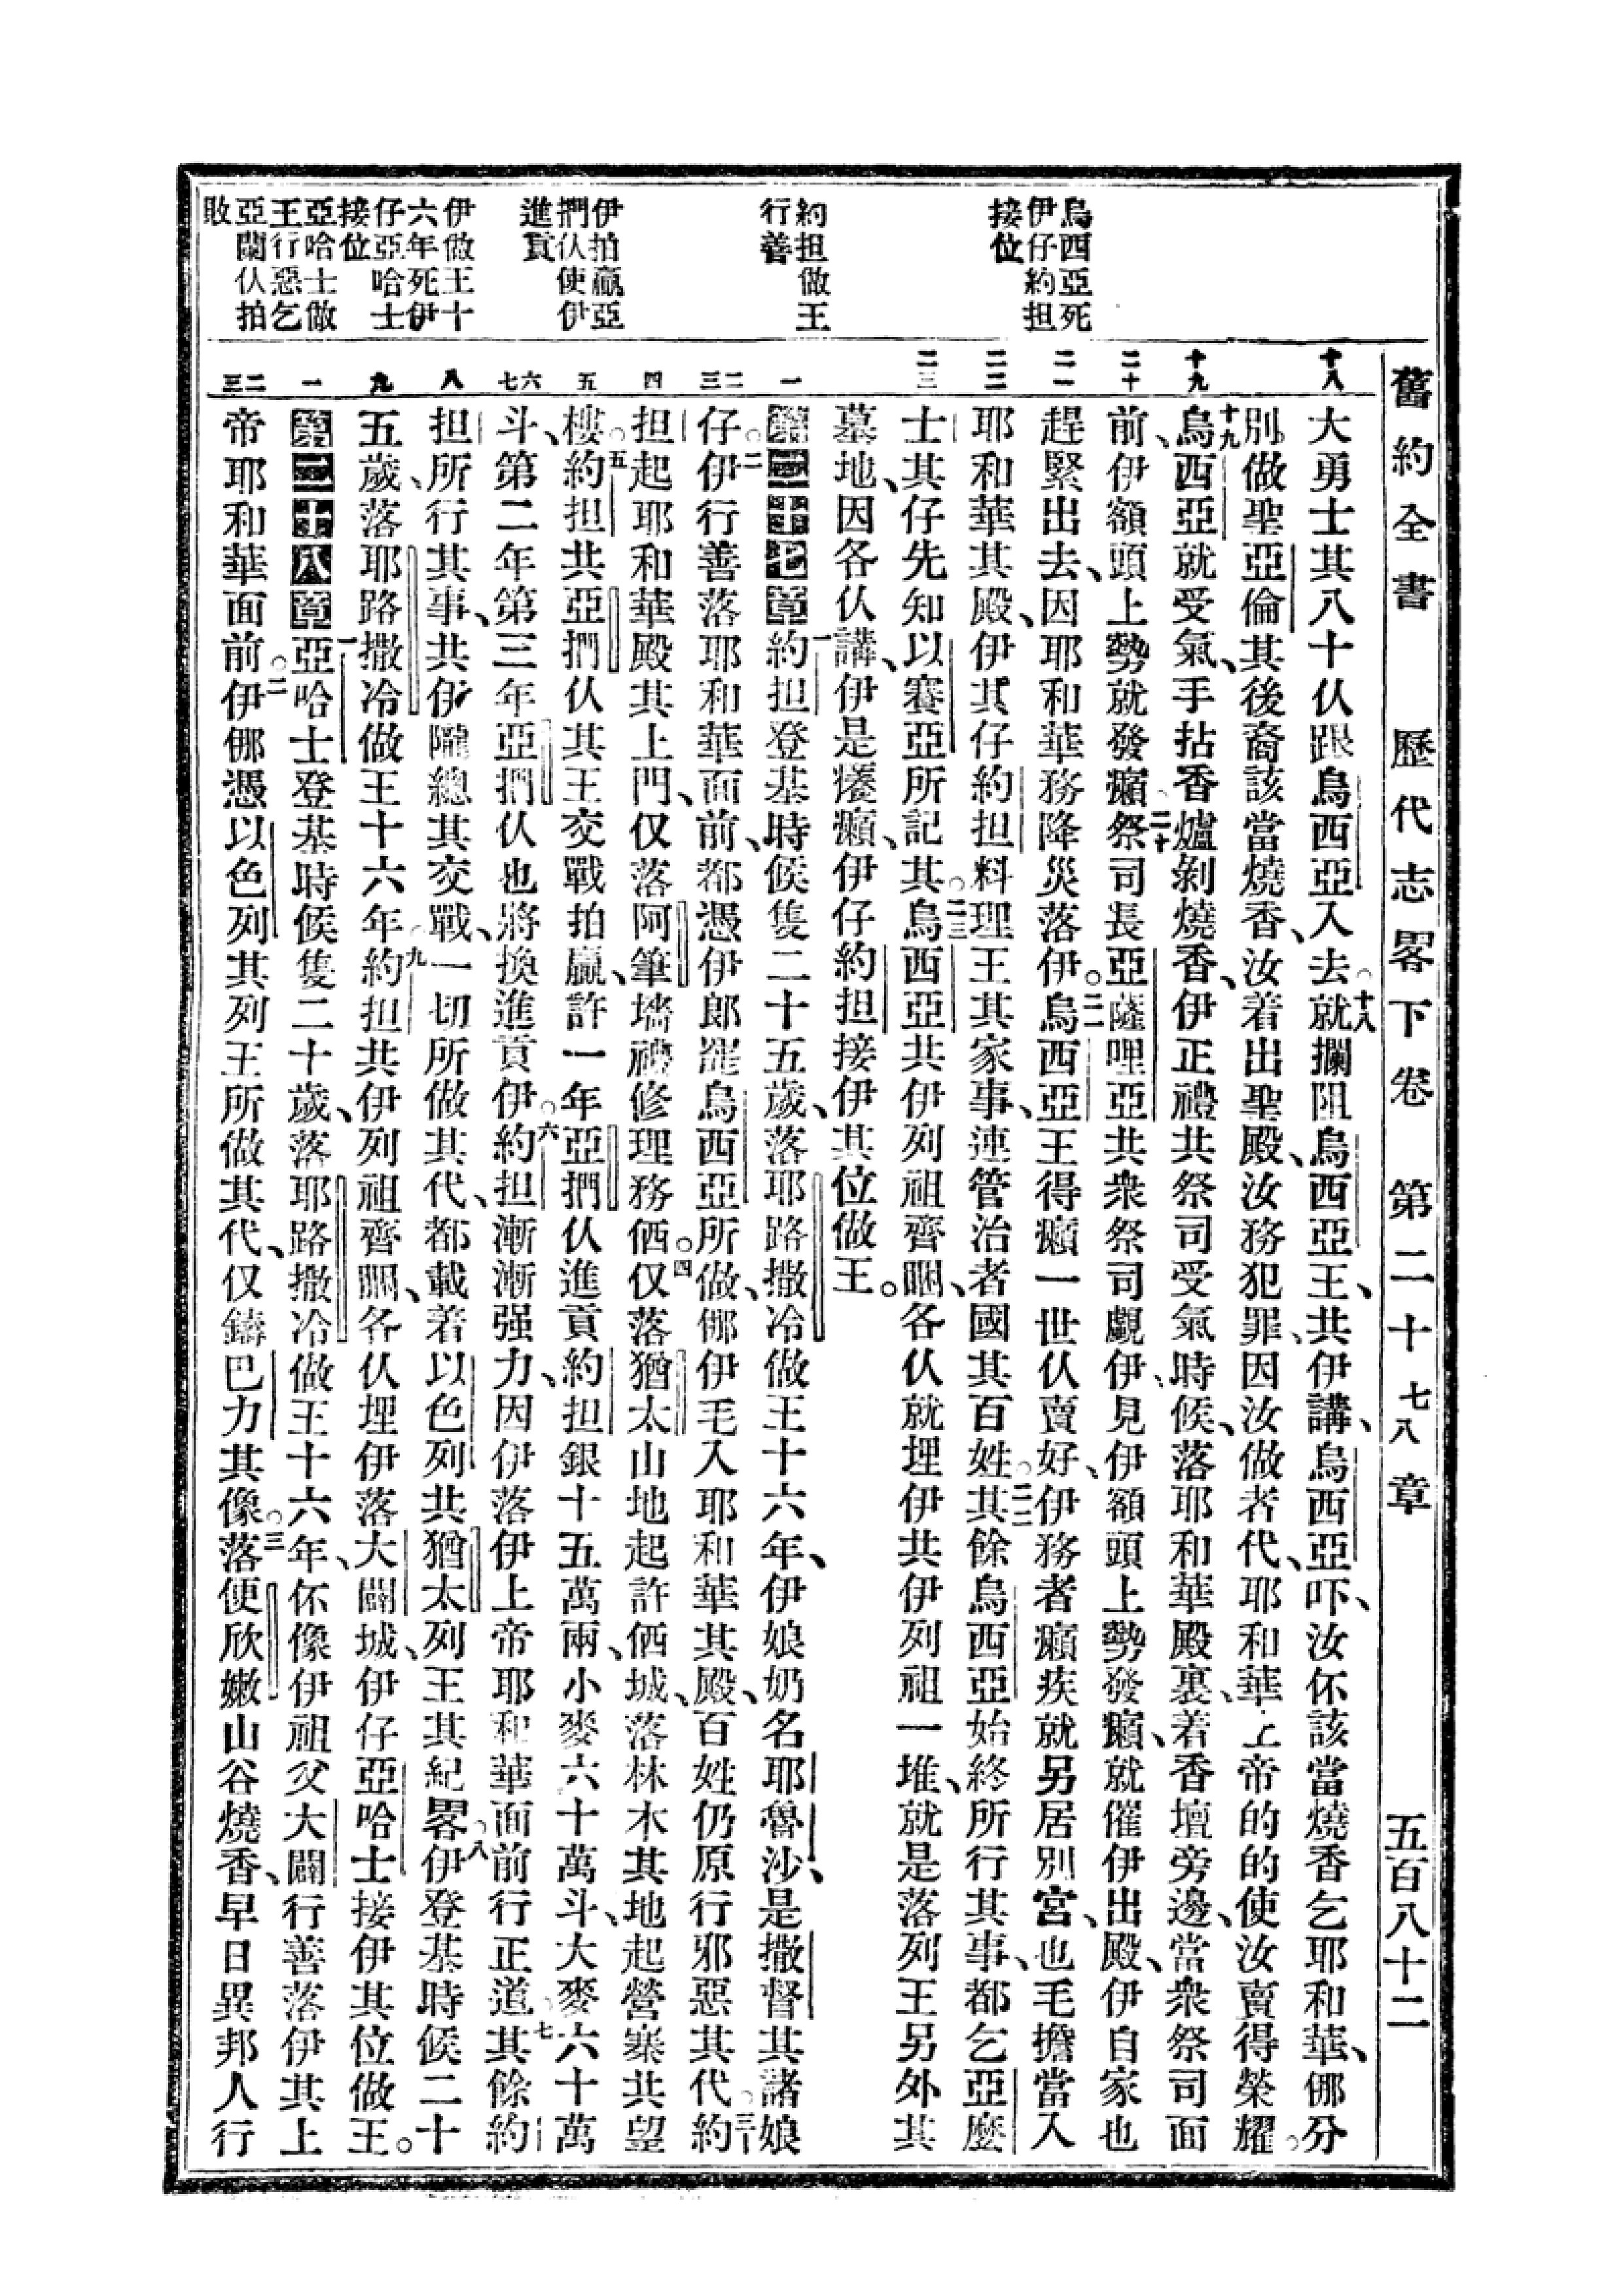 舊約全書　歷代志畧下卷　第二十七八章　五百八十二
烏西亞死
伊仔約担
接位
約担做王
行善
伊拍贏亞
捫仈使伊
進貢
伊做王十
六年死伊
仔亞哈士
接位
亞哈士做
王行惡乞
亞蘭仈拍
敗
十八
十九
二十
二一
二二
二三
一
二三
四
五
六七
八
九
一
二三
大勇士其八十仈跟烏西亞入去。十八就攔阻烏西亞王、共伊講、烏西亞吓、汝伓該當燒香乞耶和華、儸分
別。做聖亞倫其後裔該當燒香、汝着出聖殿、汝務犯罪、因汝做者代、耶和華上帝的的使汝賣得榮耀。
十九烏西亞就受氣、手拈香爐剝燒香、伊正禮共祭司受氣時候、落耶和華殿裏、着香壇旁邊、當衆祭司面
前、伊額頭上勢就發癩。二十祭司長亞薩哩亞共衆祭司覷伊、見伊額頭上勢發癩、就催伊出殿、伊自家也
趕緊出去、因耶和華務降災落伊。二一烏西亞王得癩一世仈賣好、伊務者癩疾就另居別宮、也毛擔當入
耶和華其殿、伊其仔約担料理王其家事、連管治者國其百姓。二二其餘烏西亞始終所行其事、都乞亞麼
士其仔先知以賽亞所記其。二三烏西亞共伊列祖齊睏、各仈就埋伊共伊列祖一堆、就是落列王另外其
墓地、因各仈講、伊是癢癩、伊仔約担接伊其位做王。
第二十七章一約担登基時候隻二十五歲、落耶路撒冷做王十六年、伊娘奶名耶魯沙、是撒督其諸娘
仔。二伊行善落耶和華面前、都憑伊郎罷烏西亞所做、儸伊毛入耶和華其殿、百姓仍原行邪惡其代。三約
担起耶和華殿其上門、仅落阿筆墻禮修理務価。四仅落猶太山地起許価城、落林木其地起營寨共望
樓。五約担共亞捫仈其王交戰拍贏、許一年亞捫仈進貢約担銀十五萬兩、小麥六十萬斗、大麥六十萬
斗、第二年第三年亞捫仈也將換進貢伊。六約担漸漸强力、因伊落伊上帝耶和華面前行正道。七其餘約
担所行其事、共伊隴總其交戰、一切所做其代、都載着以色列共猶太列王其紀畧。八伊登基時候二十
五歲、落耶路撒冷做王十六年。九約担共伊列祖齊睏、各仈埋伊落大闢城、伊仔亞哈士接伊其位做王。
第二十八章一亞哈士登基時候隻二十歲、落耶路撒冷做王十六年、伓像伊祖父大闢行善落伊其上
帝耶和華面前。二伊儸憑以色列其列王所做其代、仅鑄巴力其像。三落便欣嫩山谷燒香、早日異邦人行